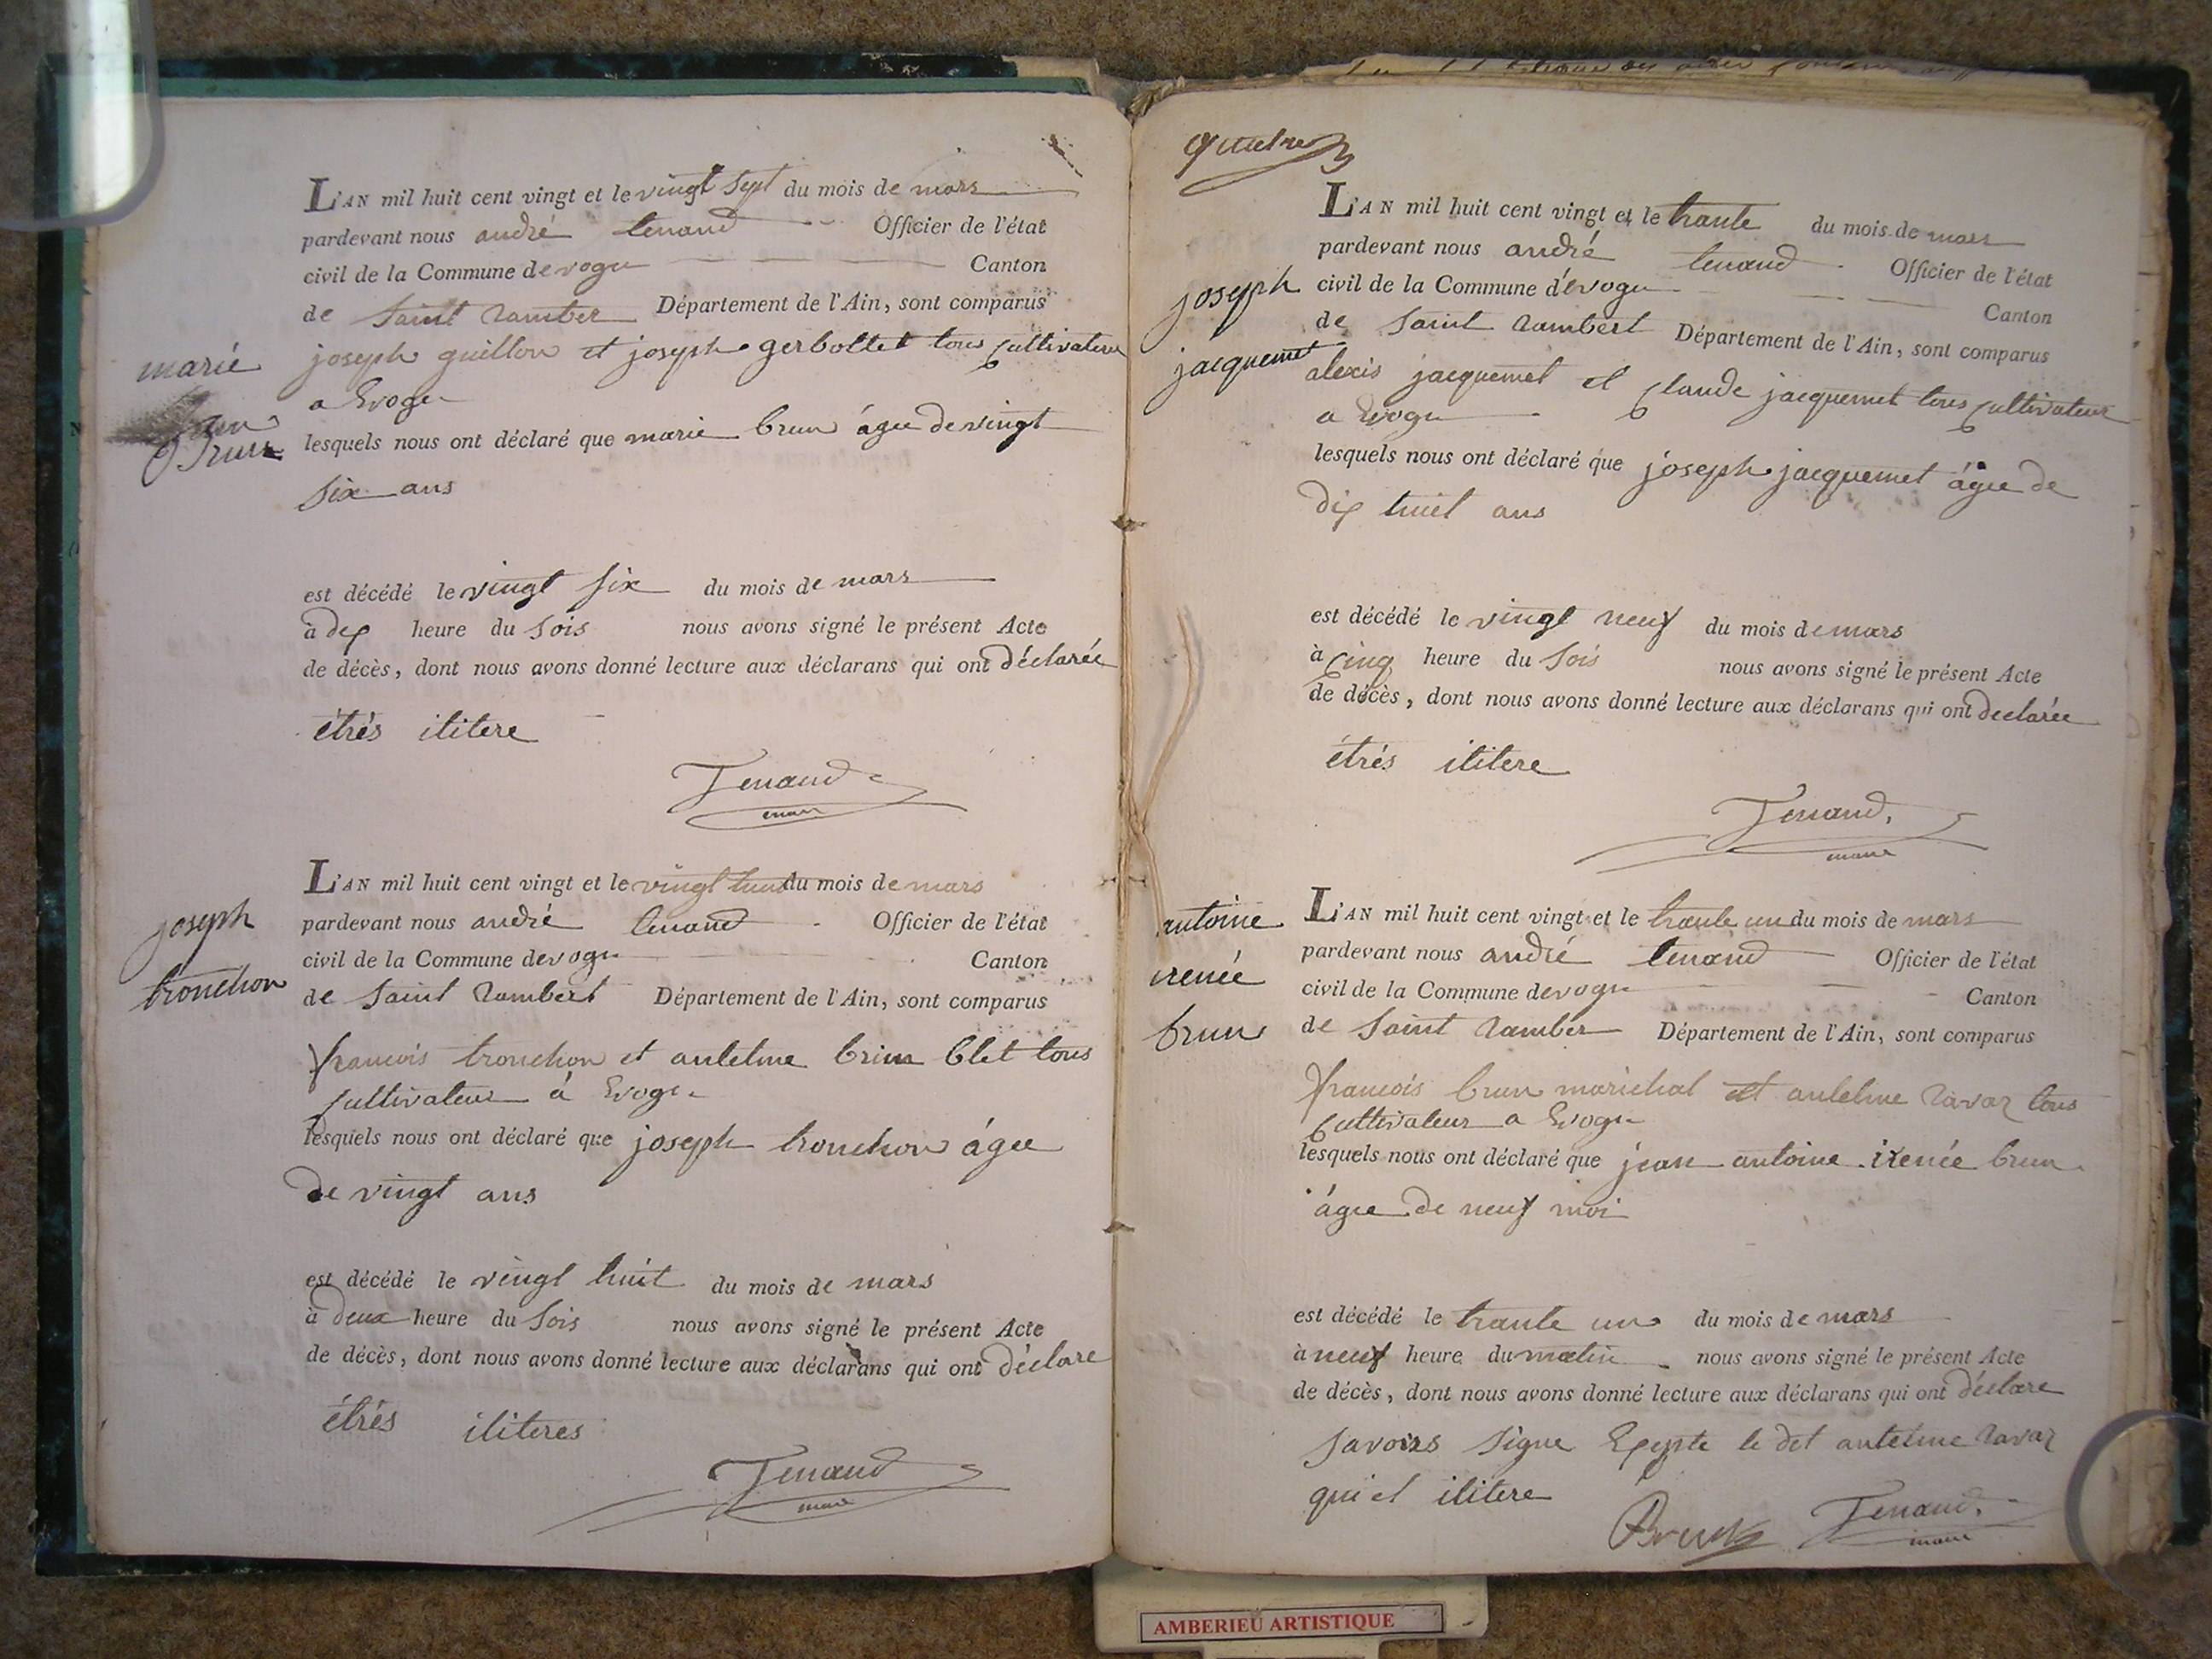 L'AN mil huit cent vingt et le vingt sept du mois de mars
pardevant nous andré tenand Officier de l'état
civil de la Commune devogu Canton
de Saint ramber Département de l'Ain, sont comparus
joseph guillon et joseph gerbollet tous cultivateur
a Evogu
marié
Brun
lesquels nous ont déclaré que marie brun ágee de vingt
six ans
est décédé le vingt six du mois de mars
à dix heure du Soir nous avons signé le présent Acte
de décès, dont nous avons donné lecture aux déclarans qui ont déclarée
étrés ilitere
Tenand
maire
L'AN mil huit cent vingt et le vingt huit du mois de mars
pardevant nous andré tenand Officier de l'état
civil de la Commune devogu Canton
de Saint rambert Département de l'Ain, sont comparus
joseph
tronchon
francois tronchon et antelme brun blet tous
cultivateur á Evogu
lesquels nous ont déclaré que joseph tronchon ágee
de vingt ans
est décédé le vingt huit du mois de mars
à deux heure du Soir nous avons signé le présent Acte
de décès, dont nous avons donné lecture aux déclarans qui ont déclare
étrés iliteres
Tenand
maire
L'AN mil huit cent vingt et le trante du mois de mars
pardevant nous andré tenand Officier de l'état
civil de la Commune d'évogu Canton
de Saint rambert Département de l'Ain, sont comparus
joseph
jacquemet
alexis jacquemet et Claude jacquemet tous cultivateur
a Evogu
lesquels nous ont déclaré que joseph jacquemet ágee de
dix huit ans
est décédé le vingt neuf du mois de mars
à Cinq heure du Soir nous avons signé le présent Acte
de décès, dont nous avons donné lecture aux déclarans qui ont declarée
étrés ilitere
Tenand
maire
L'AN mil huit cent vingt et le trante un du mois de mars
pardevant nous andré tenand Officier de l'état
civil de la Commune devogu Canton
de Saint ramber Département de l'Ain, sont comparus
antoine
irenée
brun
francois brun marichal et antelme ravaz tous
cultivateur a Evogu
lesquels nous ont déclaré que jean antoine irenée brun
ágee de neuf moi
est décédé le trante un du mois de mars
à neuf heure du matin nous avons signé le présent Acte
de décès, dont nous avons donné lecture aux déclarans qui ont déclare
Savoirs Signe Exepte le dit antelme ravaz
qui et ilitere
Brun Tenand
maire
AMBERIEU ARTISTIQUE